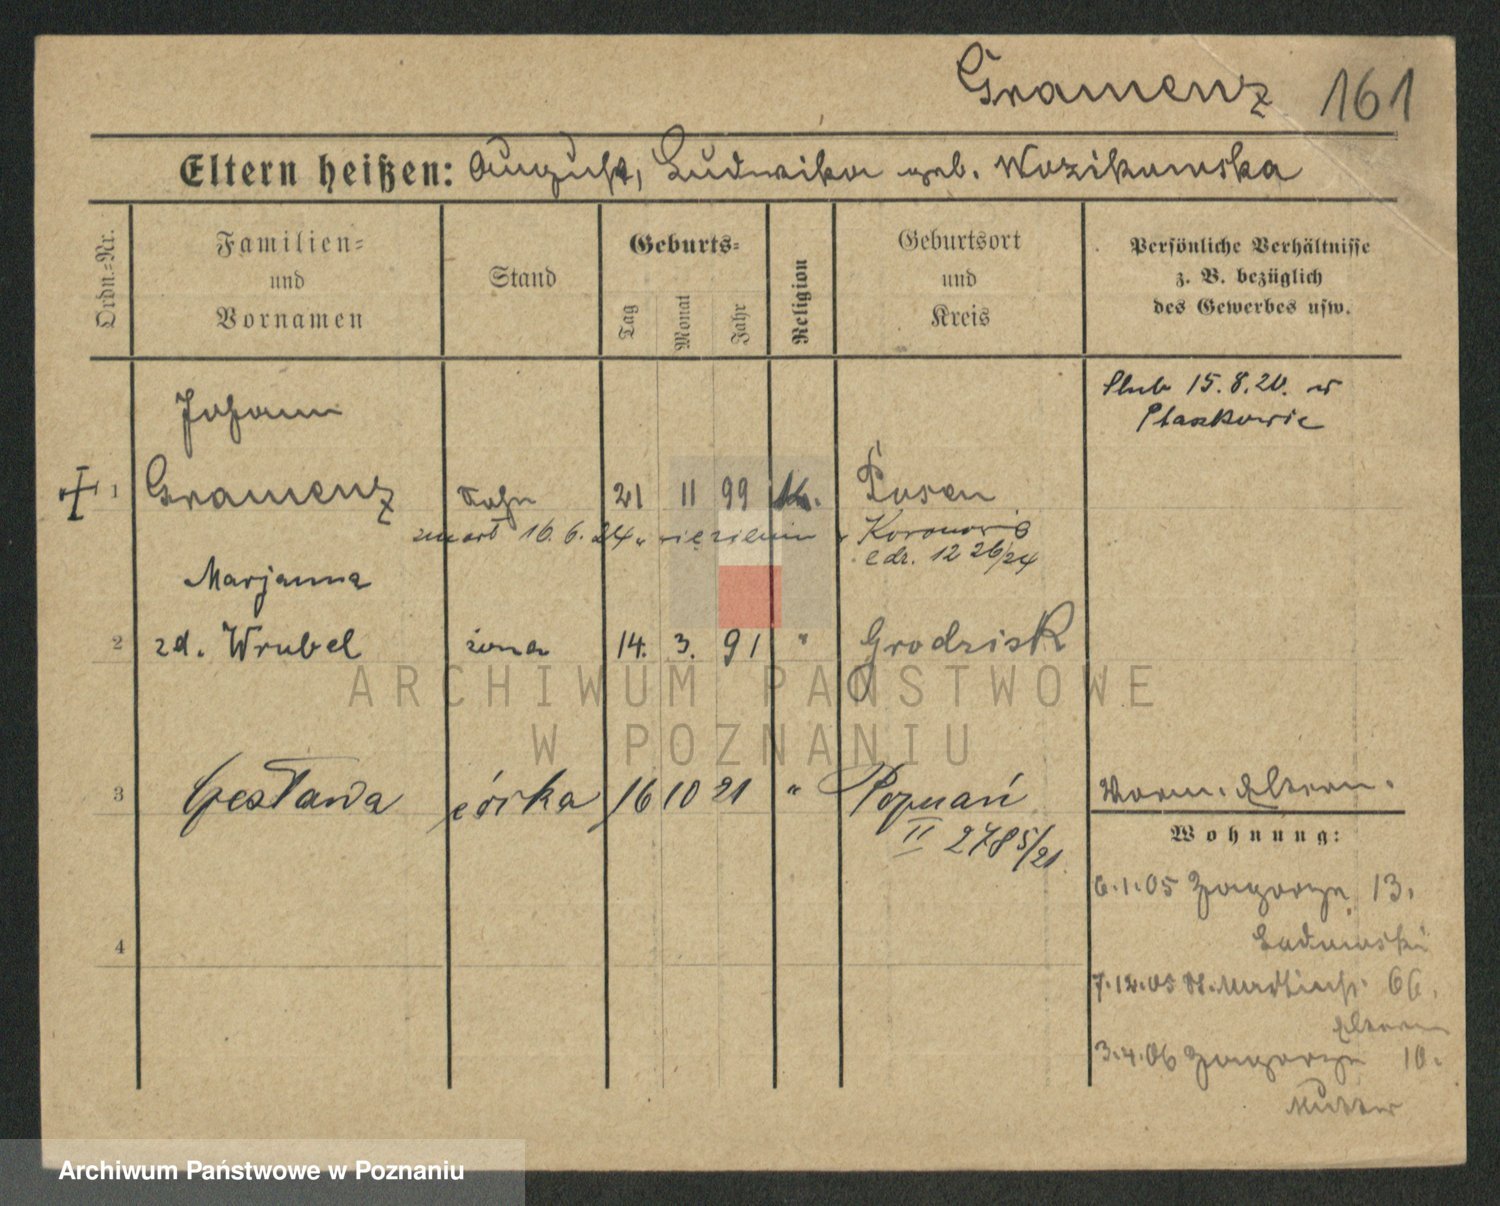 Gramenz 161
Eltern heißen: August, Ludwika geb. Wozikowska
Ordn.-Nr.
Familien-
und
Vornamen
Stand
Geburts-
Tag
Monat
Jahr
Religion
Geburtsort
und
Kreis
Persönliche Verhältnisse
z. B. bezüglich
des Gewerbes usw.
Ślub 15.8.20. w
Ptaszkowie
Johann
1 Gramenz Sohn 21 11 99 K. Posen
zmarł 16.6.24 w więzieniu w Koronowie
2 Marjanna
zd. Wrubel żona 14. 3. 91 " Grodzisk
3 Czesława córka 16 10 21 " Poznań
II 2785/21
4
Vorm. Eltern.
Wohnung:
6.1.05 Zagorze 13.
7.12.05 St. Martinst. 66.
Eltern
3.4.06 Zagorze 10.
Mutter
ARCHIWUM PAŃSTWOWE
W POZNANIU
Archiwum Państwowe w Poznaniu